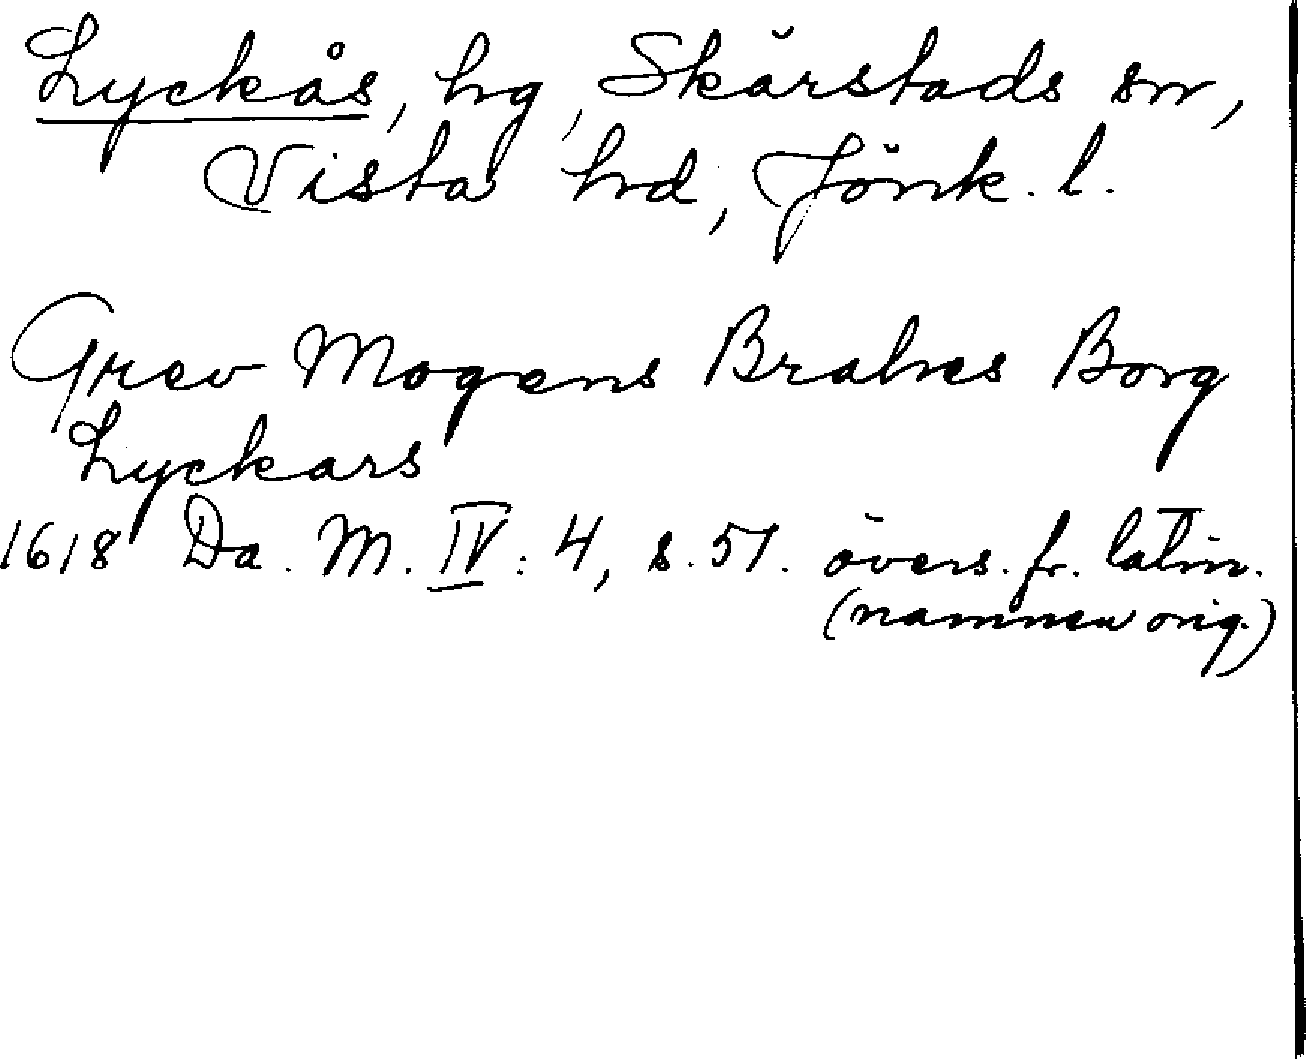 Lyckås, hg, Skärstads sn,
Vista hd, Jönk. l.
Grev Mogens Brahes Borg
Lyckars
1618 Da. M. IV: 4, s. 51. övers. fr. latin.
(namnen orig.)